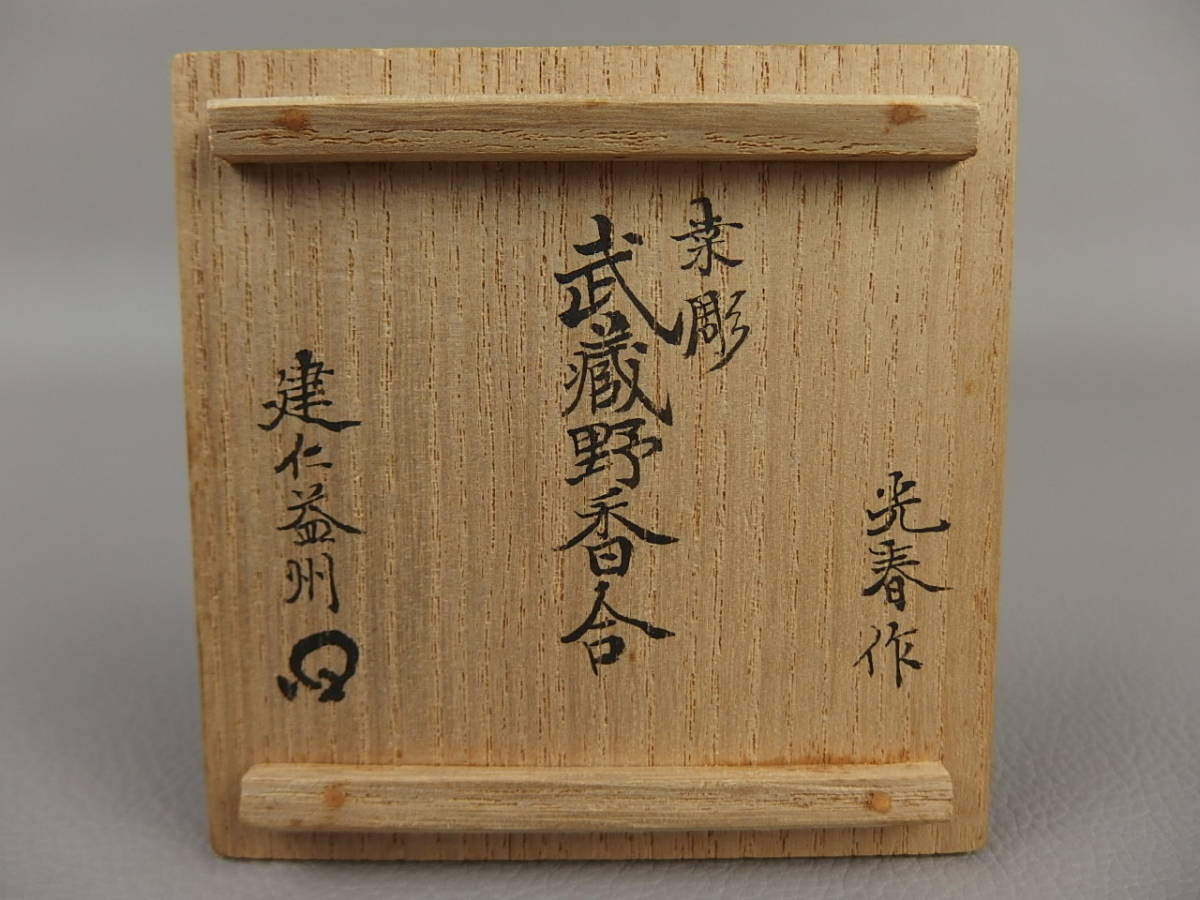 光春作
桒彫
武蔵野香合
建仁益州